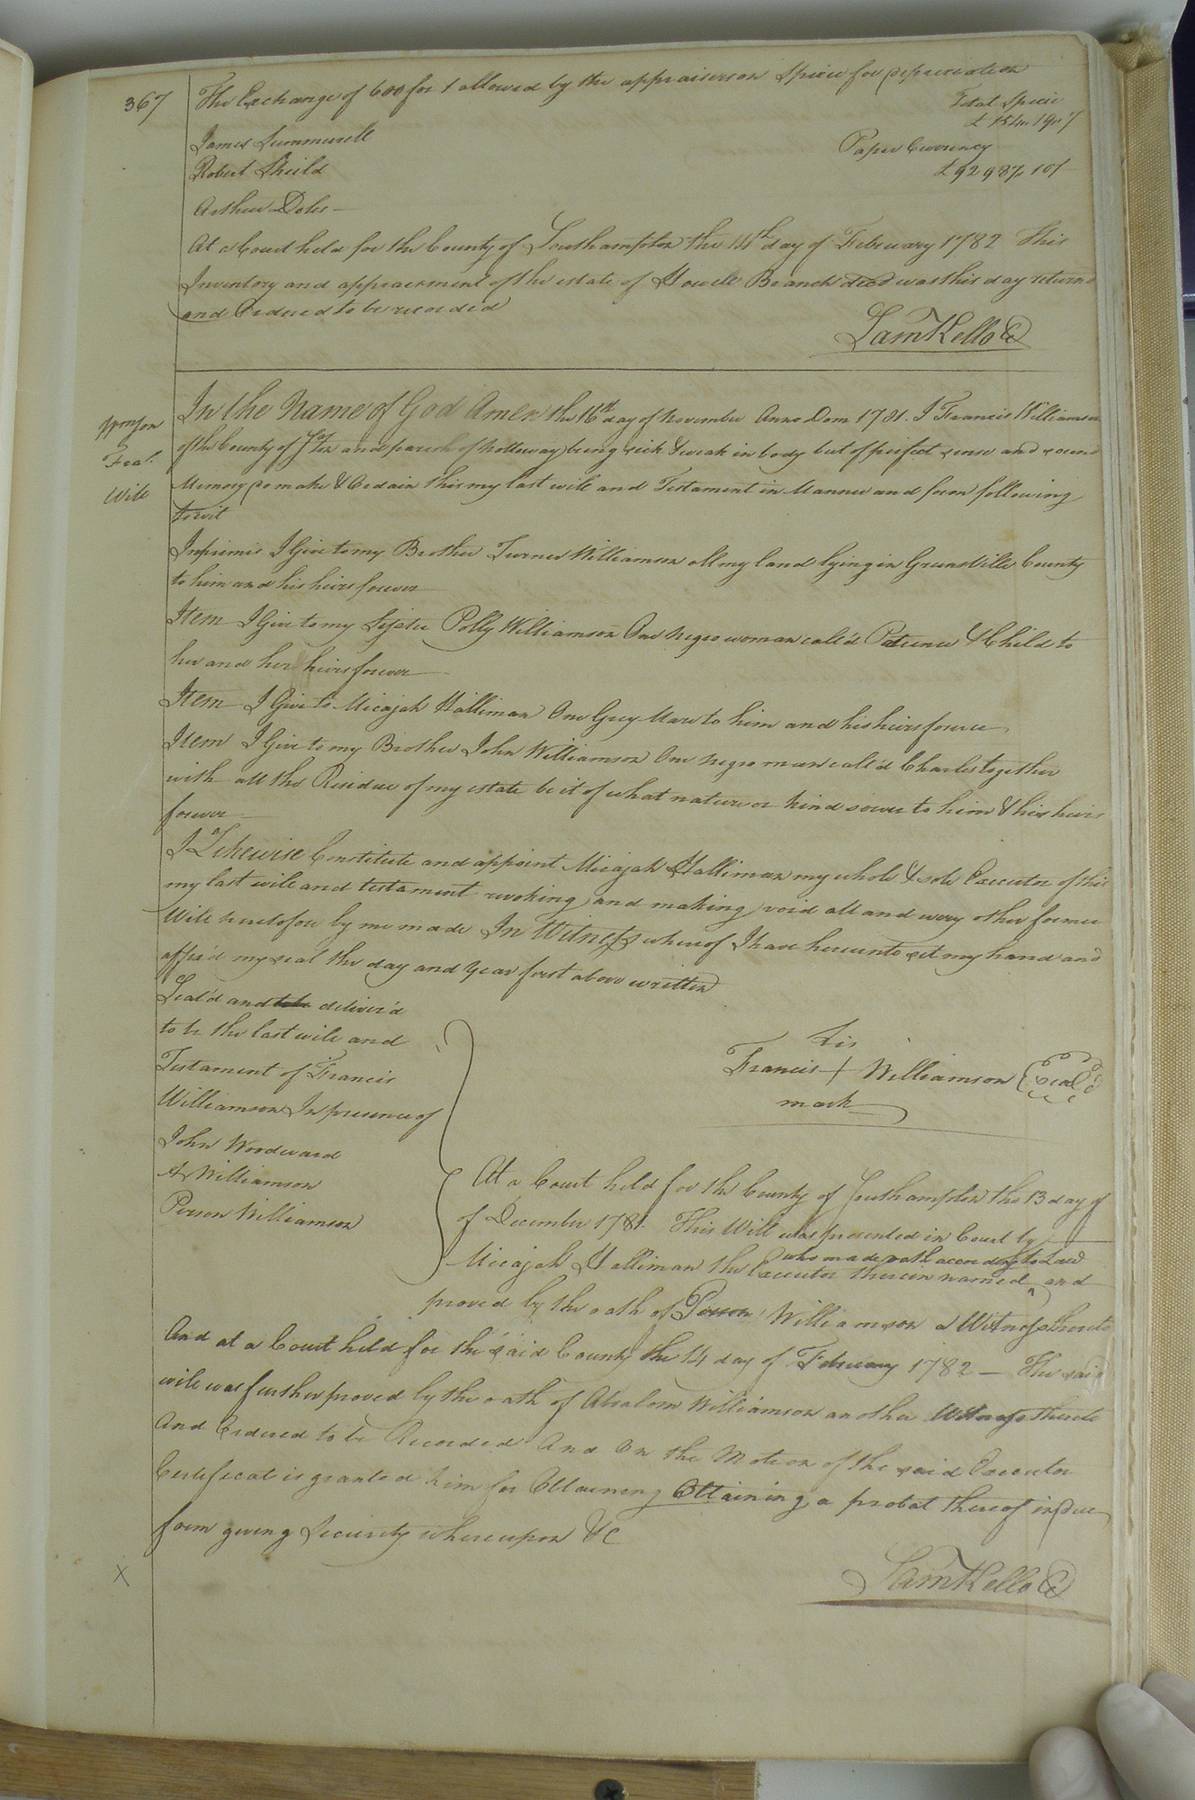 367
The Exchange of 600 for 1 allowed by the appraisers on Specie for depreciation
Total Specie
£ 154 " 19 " 7
James Summerell
Paper Currency
Robert Sheild
£ 92987 " 10 /
Arthur Doles
At a Court held for the County of Southampton the 14th day of February 1782 This
Inventory and appraisement of the estate of Howell Branch decd was this day returnd
and Ordered to be recorded
Sam Kello C
Wmson
Fras.
Will
In the Name of God Amen the 16th day of November Anno Dom 1781. I Francis Williamson
of the County of and parish of Nottoway being sick & weak in body but of perfect sense and sound
Memory do make & Ordain this my last will and Testament in Manner and form following
towit
Inprimis I Give to my Brother Turner Williamson all my land lying in Greensville County
to him and his heirs forever
Item I Give to my Sister Polly Williamson One Negro woman call'd Patience & Child to
her and her heirs forever
Item I Give to Micajah Halliman One Grey Mare to him and his heirs forever
Item I Give to my Brother John Williamson One negro man call'd Charles together
with all the Residue of my estate be it of what nature or kind soever to him & his heirs
forever
I Likewise Constitute and appoint Micajah Halliman my whole & sole Executor of this
my last will and testament revoking and making void all and every other former
Will heretofore by me made In Witness whereof I have hereunto set my hand and
affix'd my seal the day and year first above written
Seal'd and deliver'd
to be the last will and
Testament of Francis
Williamson In presence of
John Woodward
A Williamson
Person Williamson
his
Francis + Williamson (seal)
mark
At a Court held for the County of Southampton the 13 day of
of December 1781. This Will was presented in Court by
who made oath according to Law
Micajah Halliman the Executor therein named ^ and
proved by the oath of Person Williamson a Witness thereto
And at a Court held for the said County the 14 day of February 1782 — The said
will was further proved by the oath of Absalom Williamson another Witness thereto
And Ordered to be Recorded And On the Motion of the said Executor
Certificat is granted him for Obtaining Obtaining a probat thereof in due
form giving Security whereupon &C
Sam Kello C
X